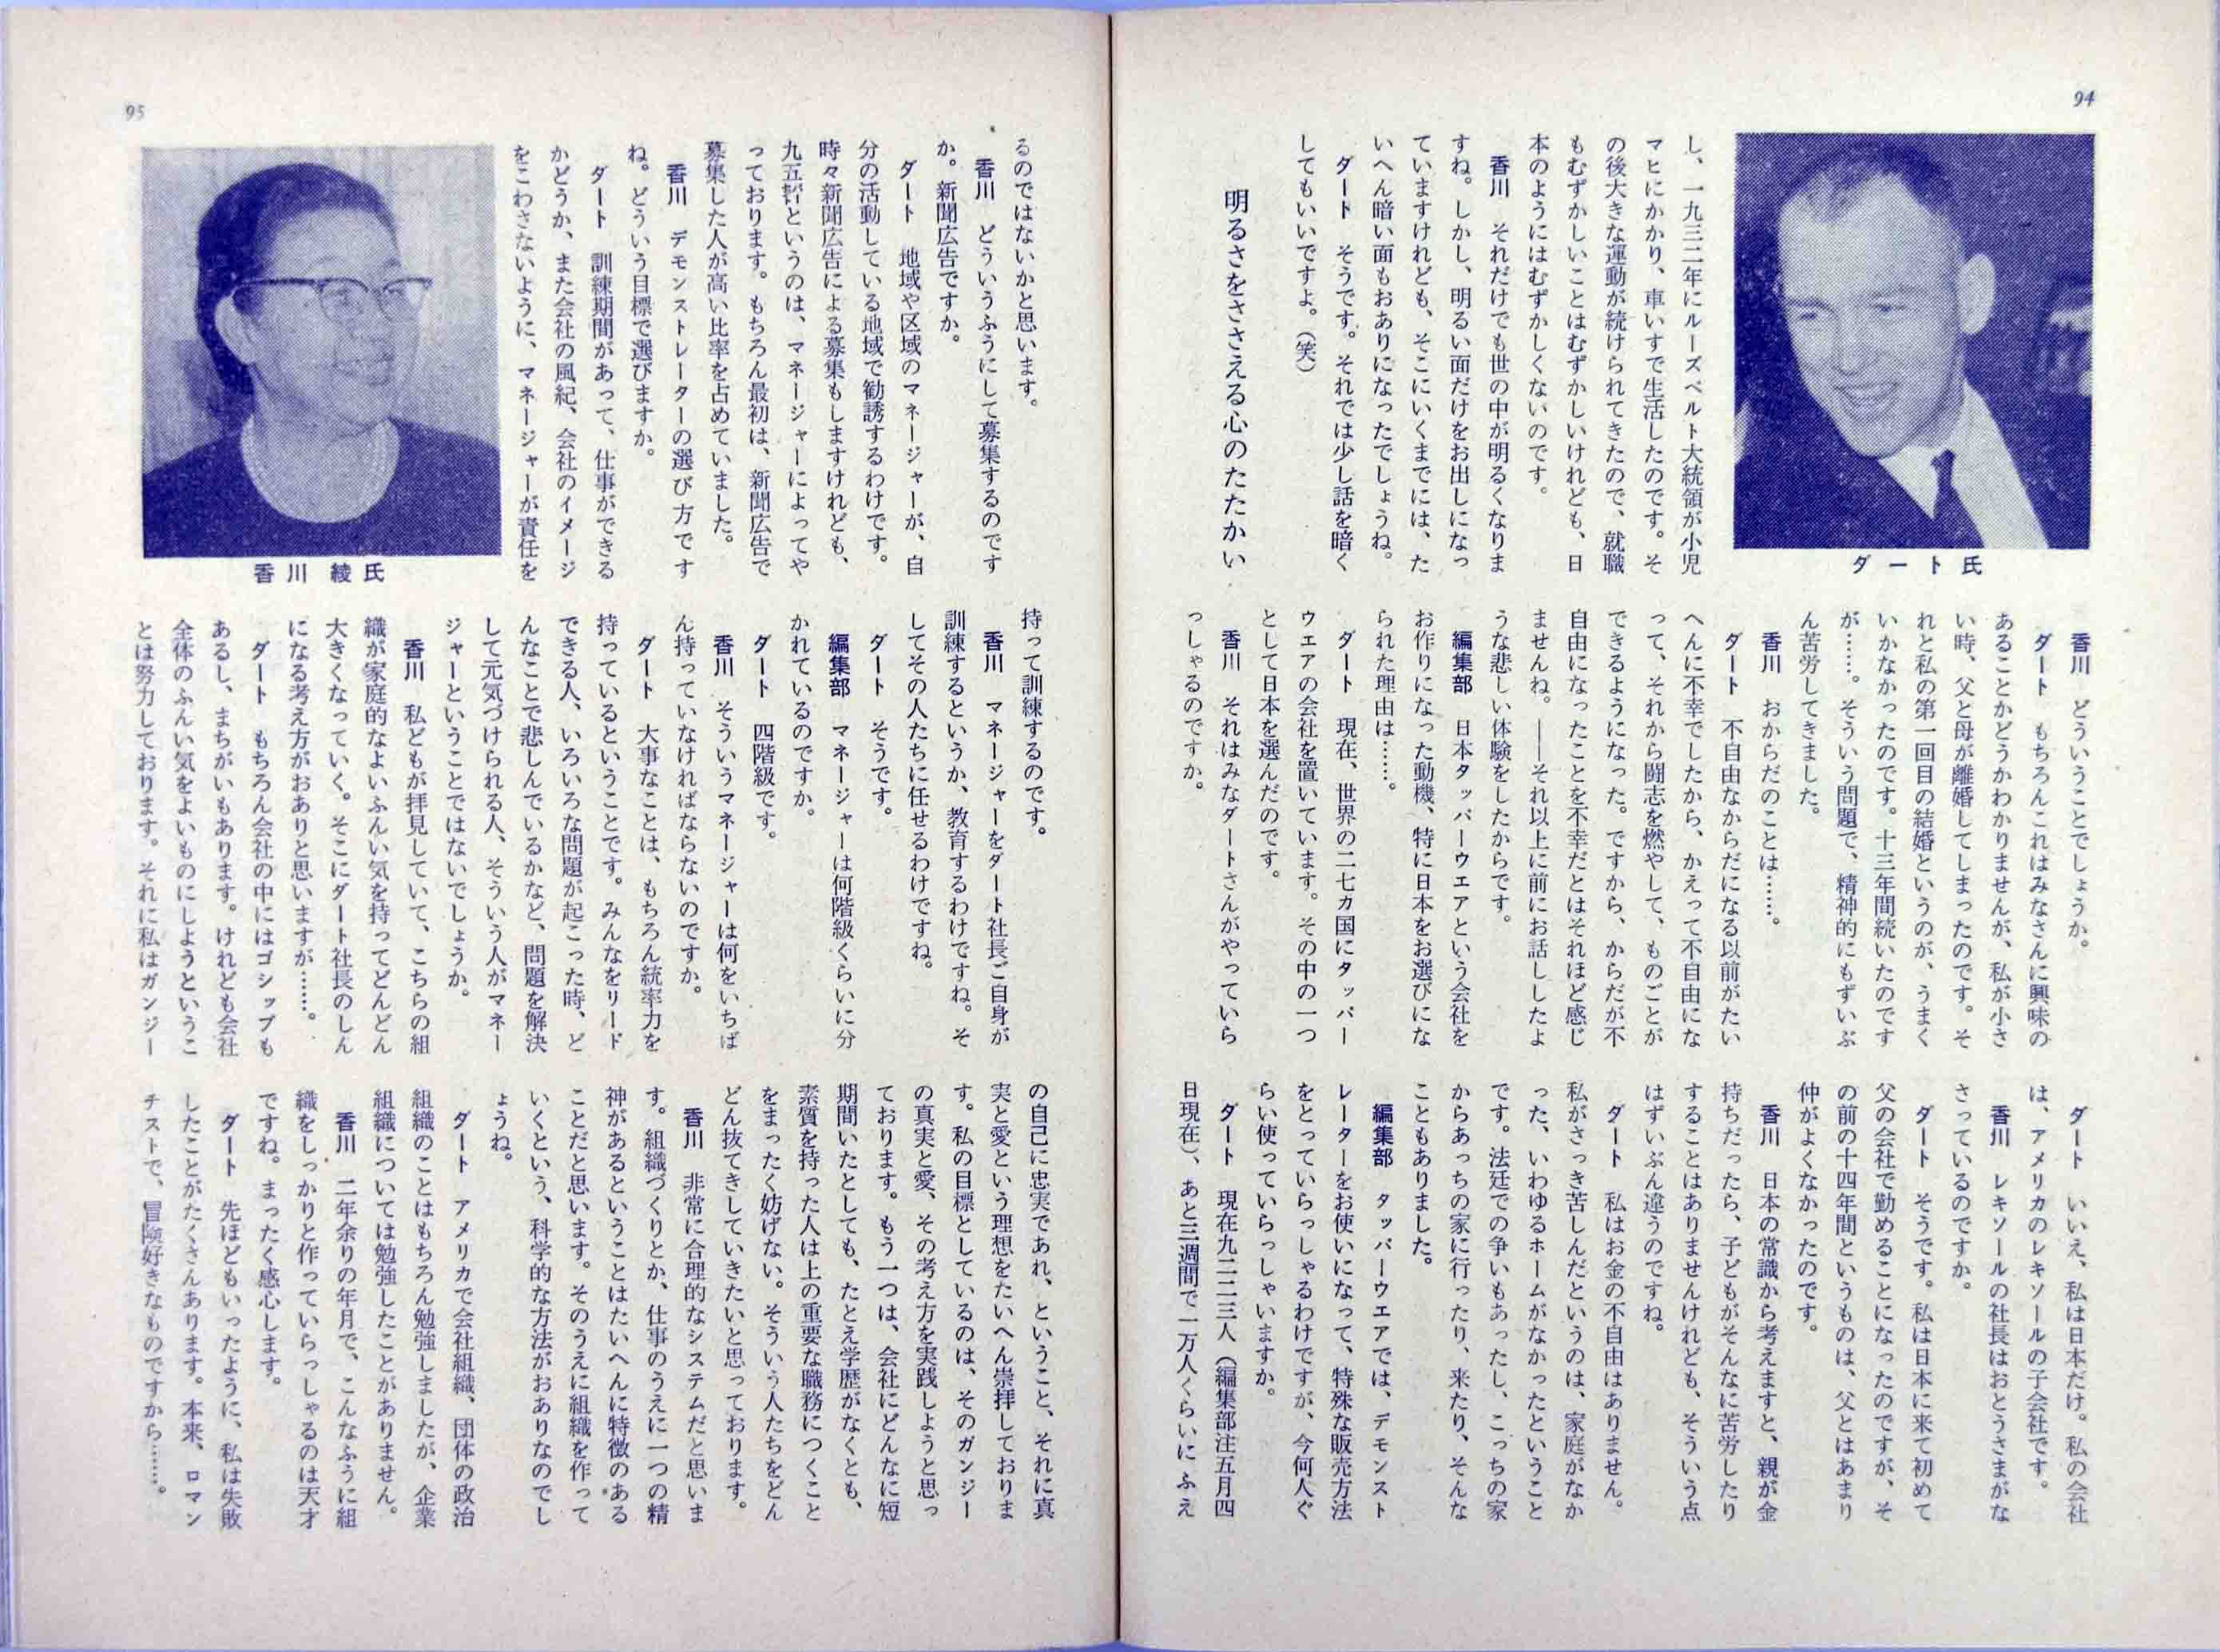 94
ダート氏
し、一九三二年にルーズベルト大統領が小児
マヒにかかり、車いすで生活したのです。そ
の後大きな運動が続けられてきたので、就職
もむずかしいことはむずかしいけれども、日
本のようにはむずかしくないのです。
香川　それだけでも世の中が明るくなりま
すね。しかし、明るい面だけをお出しになっ
ていますけれども、そこにいくまでには、た
いへん暗い面もおありになったでしょうね。
ダート　そうです。それでは少し話を暗く
してもいいですよ。（笑）
明るさをささえる心のたたかい
香川　どういうことでしょうか。
ダート　もちろんこれはみなさんに興味の
あることかどうかわかりませんが、私が小さ
い時、父と母が離婚してしまったのです。そ
れと私の第一回目の結婚というのが、うまく
いかなかったのです。十三年間続いたのです
が……。そういう問題で、精神的にもずいぶ
ん苦労してきました。
香川　おからだのことは……。
ダート　不自由なからだになる以前がたい
へんに不幸でしたから、かえって不自由にな
って、それから闘志を燃やして、ものごとが
できるようになった。ですから、からだが不
自由になったことを不幸だとはそれほど感じ
ませんね。――それ以上に前にお話ししたよ
うな悲しい体験をしたからです。
編集部　日本タッパーウエアという会社を
お作りになった動機、特に日本をお選びにな
られた理由は……。
ダート　現在、世界の二七カ国にタッパー
ウェアの会社を置いています。その中の一つ
として日本を選んだのです。
香川　それはみなダートさんがやっていら
っしゃるのですか。
ダート　いいえ、私は日本だけ。私の会社
は、アメリカのレキソールの子会社です。
香川　レキソールの社長はおとうさまがな
さっているのですか。
ダート　そうです。私は日本に来て初めて
父の会社で勤めることになったのですが、そ
の前の十四年間というものは、父とはあまり
仲がよくなかったのです。
香川　日本の常識から考えますと、親が金
持ちだったら、子どもがそんなに苦労したり
することはありませんけれども、そういう点
はずいぶん違うのですね。
ダート　私はお金の不自由はありません。
私がさっき苦しんだというのは、家庭がなか
った、いわゆるホームがなかったということ
です。法廷での争いもあったし、こっちの家
からあっちの家に行ったり、来たり、そんな
こともありました。
編集部　タッパーウエアでは、デモンスト
レーターをお使いになって、特殊な販売方法
をとっていらっしゃるわけですが、今何人ぐ
らい使っていらっしゃいますか。
ダート　現在九二二三人（編集部注五月四
日現在）、あと三週間で一万人くらいにふえ
95
るのではないかと思います。
香川　どういうふうにして募集するのです
か。新聞広告ですか。
ダート　地域や区域のマネージャーが、自
分の活動している地域で勧誘するわけです。
時々新聞広告による募集もしますけれども、
九五㌫というのは、マネージャーによってや
っております。もちろん最初は、新聞広告で
募集した人が高い比率を占めていました。
香川　デモンストレーターの選び方です
ね。どういう目標で選びますか。
ダート　訓練期間があって、仕事ができる
かどうか、また会社の風紀、会社のイメージ
をこわさないように、マネージャーが責任を
香川　綾氏
持って訓練するのです。
香川　マネージャーをダート社長ご自身が
訓練するというか、教育するわけですね。そ
してその人たちに任せるわけですね。
ダート　そうです。
編集部　マネージャーは何階級くらいに分
かれているのですか。
ダート　四階級です。
香川　そういうマネージャーは何をいちば
ん持っていなければならないのですか。
ダート　大事なことは、もちろん統率力を
持っているということです。みんなをリード
できる人、いろいろな問題が起こった時、ど
んなことで悲しんでいるかなど、問題を解決
して元気づけられる人、そういう人がマネー
ジャーということではないでしょうか。
香川　私どもが拝見していて、こちらの組
織が家庭的なよいふんい気を持ってどんどん
大きくなっていく。そこにダート社長のしん
になる考え方がおありと思いますが……。
ダート　もちろん会社の中にはゴシップも
あるし、まちがいもあります。けれども会社
全体のふんい気をよいものにしようというこ
とは努力しております。それに私はガンジー
の自己に忠実であれ、ということ、それに真
実と愛という理想をたいへん崇拝しておりま
す。私の目標としているのは、そのガンジー
の真実と愛、その考え方を実践しようと思っ
ております。もう一つは、会社にどんなに短
期間いたとしても、たとえ学歴がなくとも、
素質を持った人は上の重要な職務につくこと
をまったく妨げない。そういう人たちをどん
どん抜てきしていきたいと思っております。
香川　非常に合理的なシステムだと思いま
す。組織づくりとか、仕事のうえに一つの精
神があるということはたいへんに特徴のある
ことだと思います。そのうえに組織を作って
いくという、科学的な方法がおありなのでし
ょうね。
ダート　アメリカで会社組織、団体の政治
組織のことはもちろん勉強しましたが、企業
組織については勉強したことがありません。
香川　二年余りの年月で、こんなふうに組
織をしっかりと作っていらっしゃるのは天才
ですね。まったく感心します。
ダート　先ほどもいったように、私は失敗
したことがたくさんあります。本来、ロマン
チストで、冒険好きなものですから……。